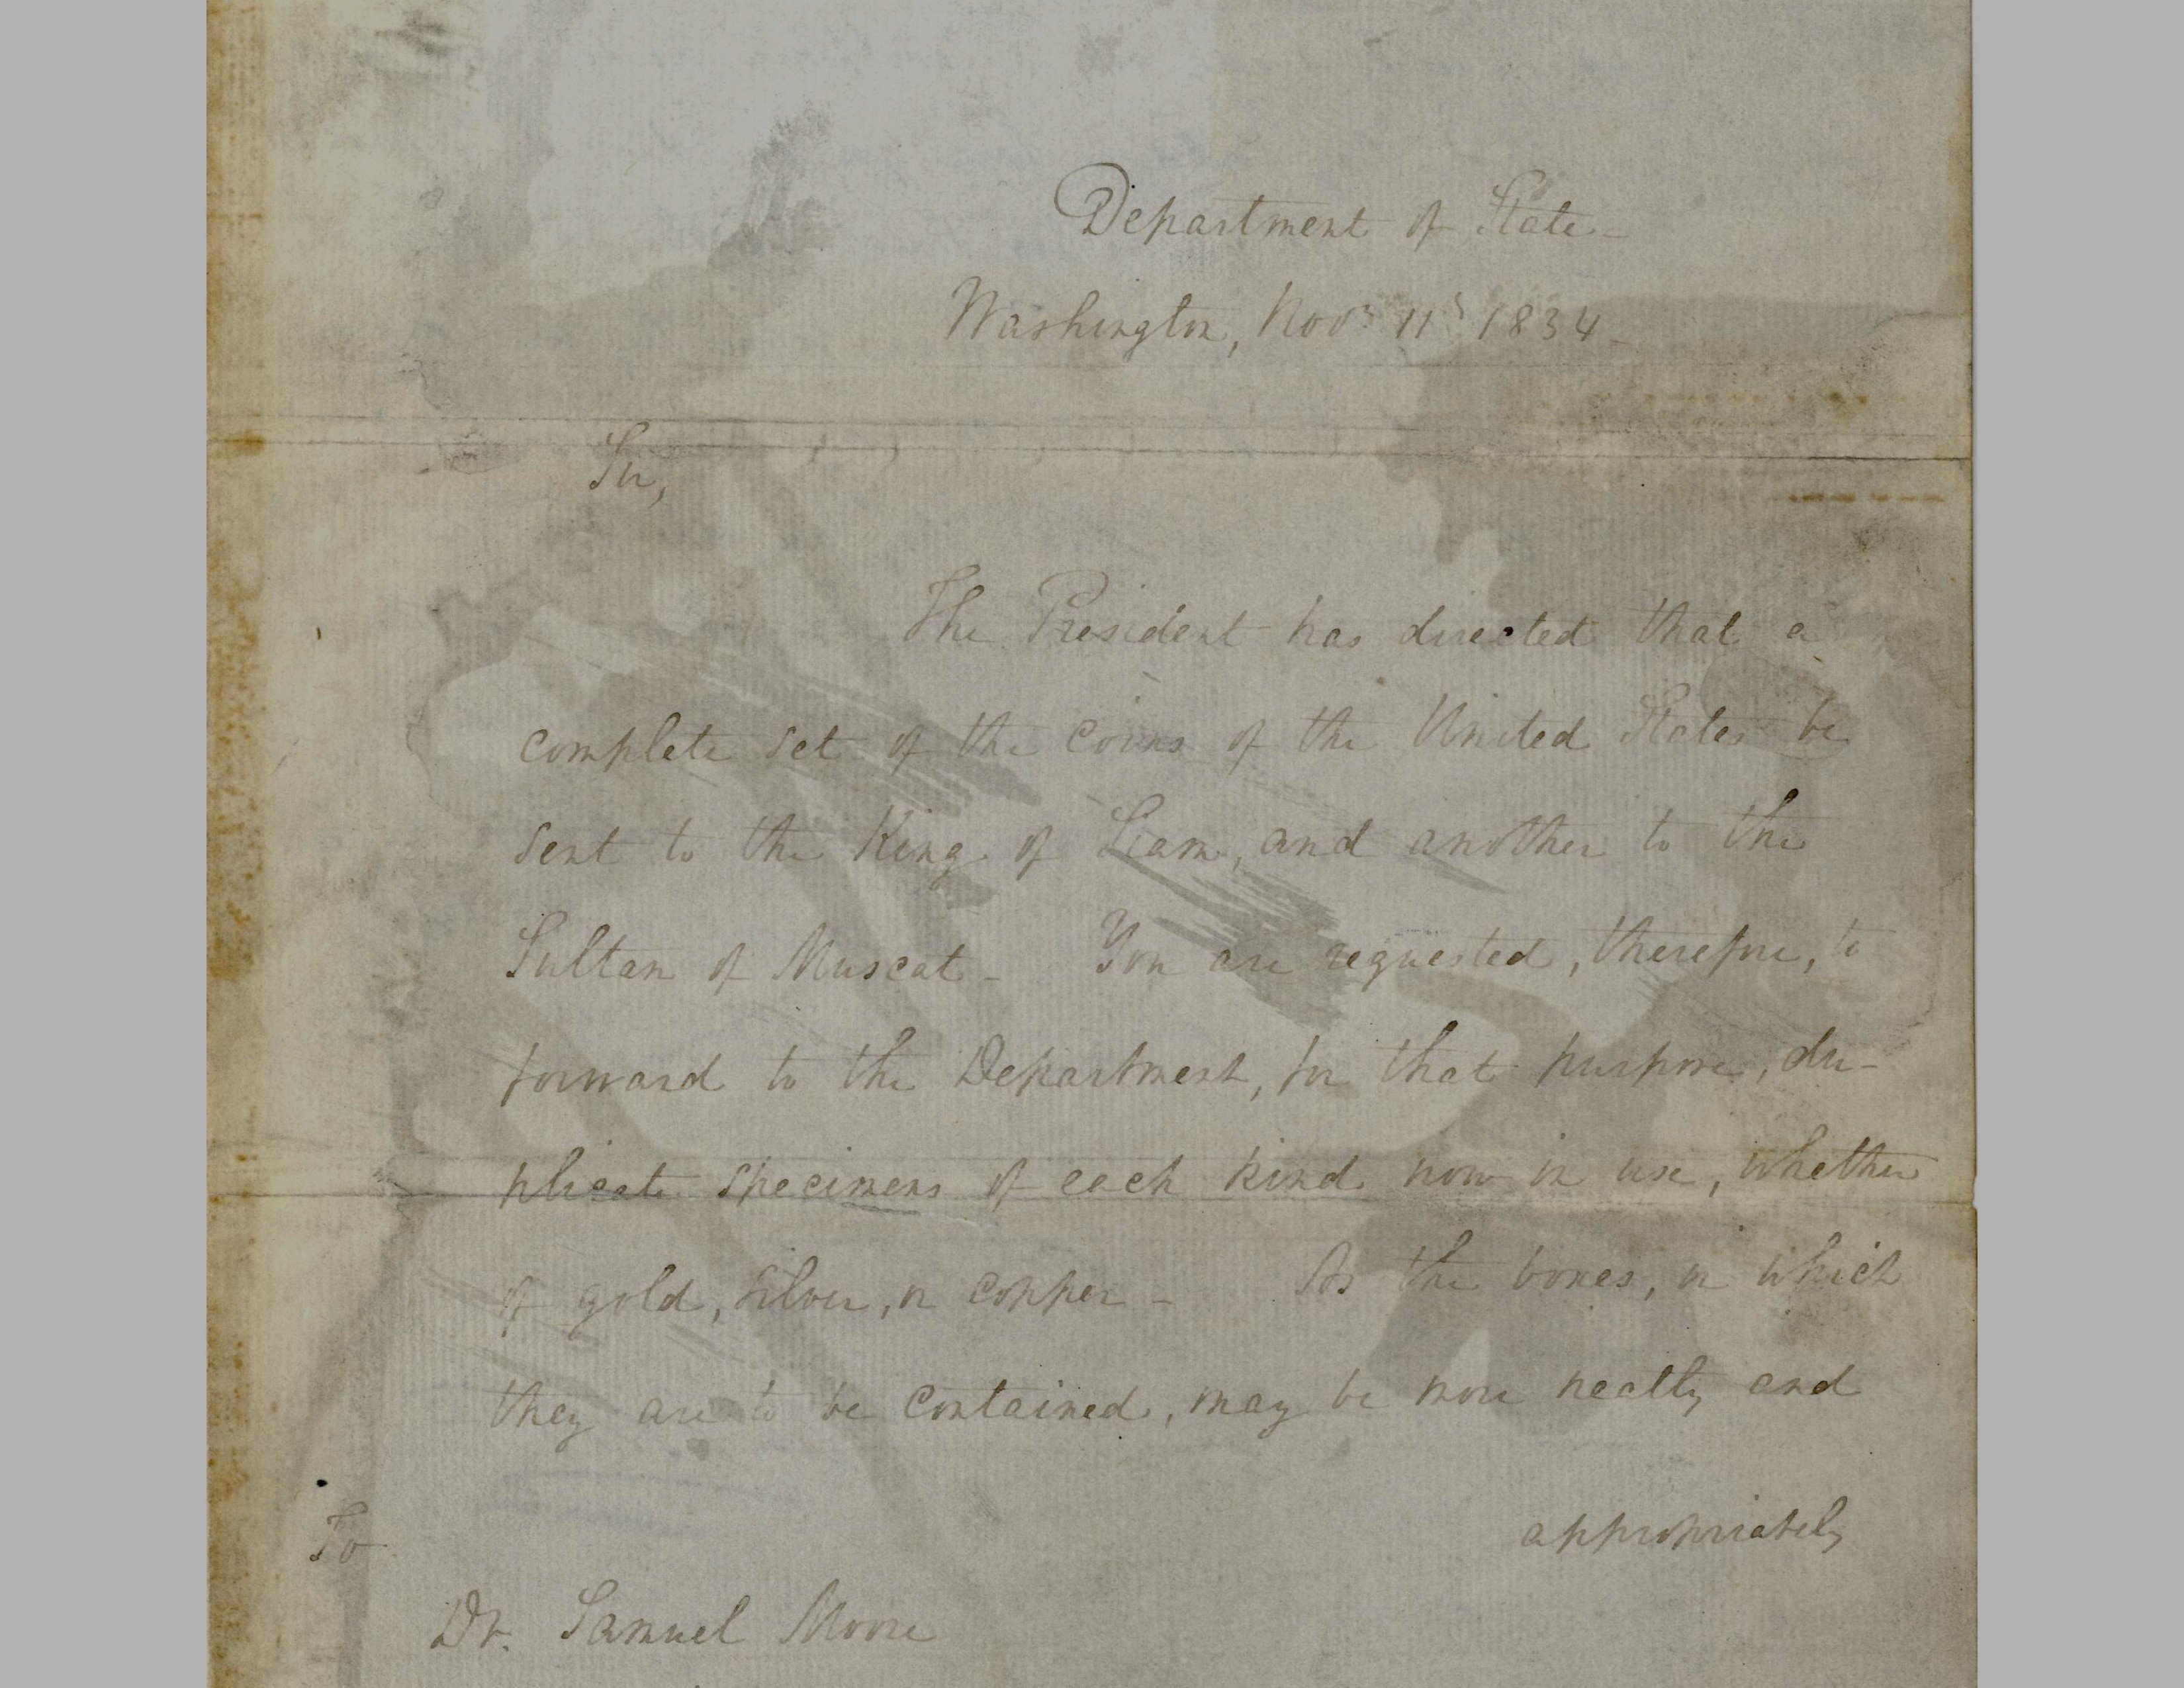 Department of State -
Washington, Novr 11th 1834 -
Sir,
The President has directed that a
complete set of the coins of the United States be
sent to the King of Siam, and another to the
Sultan of Muscat - You are requested, therefore, to
forward to the Department, for that purpose, du-
plicate specimens of each kind now in use, whether
of gold, silver, or copper - As the boxes, in which
they are to be contained, may be more neatly and
appropriately
To
Dr. Samuel Moore